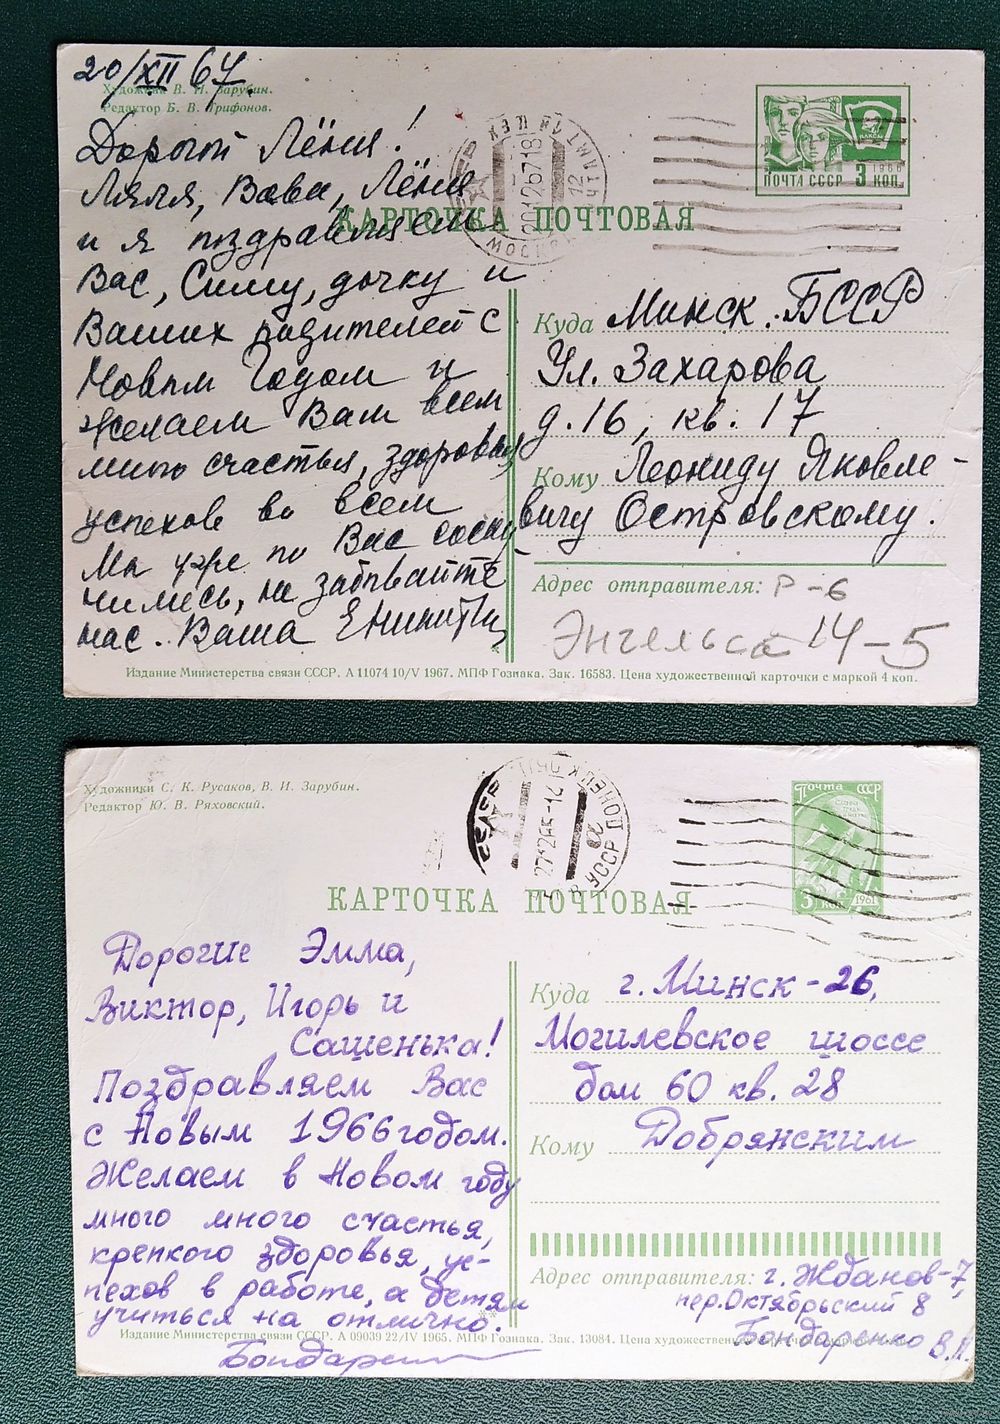 20/XII 67.
Художник В. И. Зарубин.
Редактор Б. В. Трифонов.
ПОЧТА СССР 3 КОП.
1966
ВЛКСМ
КАРТОЧКА ПОЧТОВАЯ
Дорогой Лёня!
Ляля, Вова, Лёня
и я поздравляем
Вас, Симу, дочку и
Ваших родителей с
Новым Годом и
желаем Вам всем
много счастья, здоровья,
успехов во всем
Мы уже по Вас соску
чились, не забывайте
нас. Ваша
Куда Минск. БССР
Ул. Захарова
д. 16, кв. 17
Кому Леониду Яковле-
вичу Островскому.
Адрес отправителя: Р-6
Энгельса 14-5
Издание Министерства связи СССР. А 11074 10/V 1967. МПФ Гознака. Зак. 16583. Цена художественной карточки с маркой 4 коп.
Художники С. К. Русаков, В. И. Зарубин.
Редактор Ю. В. Ряховский.
УССР ДОНЕЦК
Почта СССР
3 коп. 1961
КАРТОЧКА ПОЧТОВАЯ
Дорогие Эмма,
Виктор, Игорь и
Сашенька!
Поздравляем Вас
с Новым 1966 годом.
Желаем в Новом году
много много счастья,
крепкого здоровья, ус-
пехов в работе, а детям
учиться на отлично.
Куда г. Минск-26,
Могилевское шоссе
дом 60 кв. 28
Кому Добрянским
Адрес отправителя: г. Жданов-7,
пер. Октябрьский 8
Бондаренко В.
Издание Министерства связи СССР. А 09039 22/IV 1965. МПФ Гознака. Зак. 13084. Цена художественной